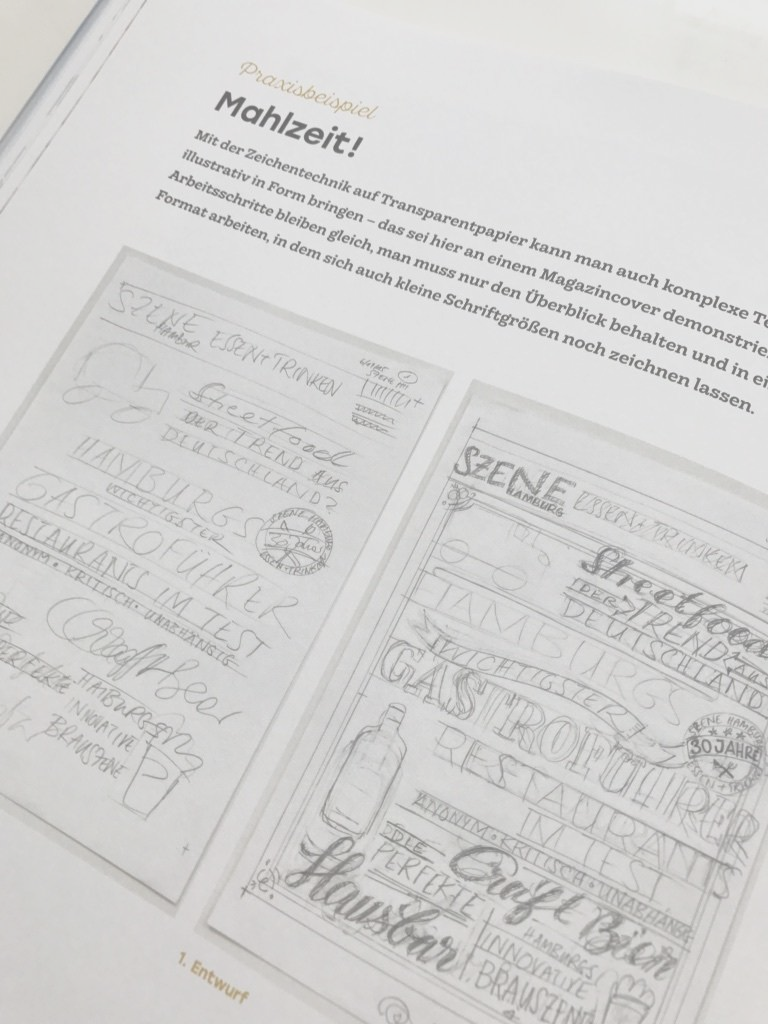 Praxisbeispiel
Mahlzeit!
Mit der Zeichentechnik auf Transparentpapier kann man auch komplexe Te
illustrativ in Form bringen – das sei hier an einem Magazincover demonstrie
Arbeitsschritte bleiben gleich, man muss nur den Überblick behalten und in ei
Format arbeiten, in dem sich auch kleine Schriftgrößen noch zeichnen lassen.
SZENE ESSEN+TRINKEN
HAMBURG
Streetfood
DER TREND AUS
DEUTSCHLAND?
HAMBURGS
WICHTIGSTER
GASTROFÜHRER
RESTAURANTS IM TEST
ANONYM • KRITISCH • UNABHÄNGIG
Craft Bear
PERFEKTE
HAMBURGS
INNOVATIVE
BRAUSZENE
1. Entwurf
SZENE ESSEN+TRINKEN
HAMBURG
Streetfood
DER TREND AUS
DEUTSCHLAND
HAMBURGS
WICHTIGSTER
GASTROFÜHRER
SZENE HAMBURG
30 JAHRE
RESTAURANTS
IM TEST
ANONYM • KRITISCH • UNABHÄNGIG
DIE
PERFEKTE
Hausbar
Craft Bier
HAMBURGS
INNOVATIVE
BRAUSZENE